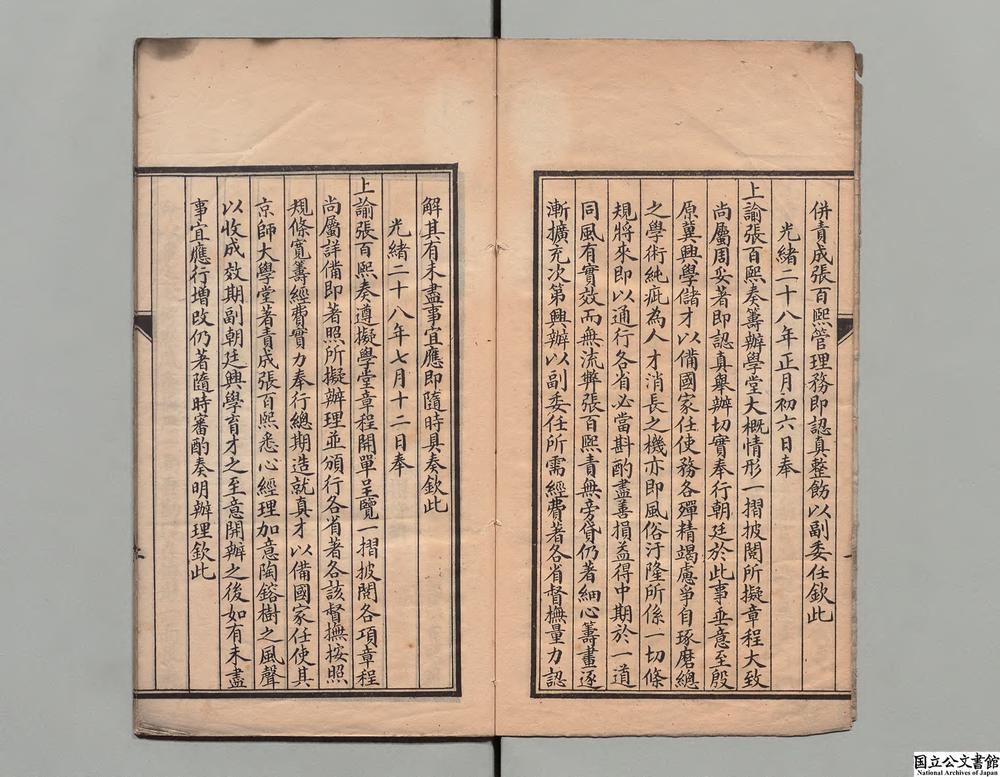 併責成張百熙管理務即認真整飭以副委任欽此
光緒二十八年正月初六日奉
上諭張百熙奏籌辦學堂大概情形一摺披閱所擬章程大致
尚屬周妥著即認真舉辦切實奉行朝廷於此事垂意至殷
原冀興學儲才以備國家任使務各殫精竭慮爭自琢磨總
之學術純疵為人才消長之機亦即風俗汙隆所係一切條
規將來即以通行各省必當斟酌盡善損益得中期於一道
同風有實效而無流弊張百熙責無旁貸仍著細心籌畫逐
漸擴充次第興辦以副委任所需經費著各省督撫量力認
解其有未盡事宜應即隨時具奏欽此
光緒二十八年七月十二日奉
上諭張百熙奏遵擬學堂章程開單呈覽一摺披閱各項章程
尚屬詳備即著照所擬辦理並頒行各省著各該督撫按照
規條寬籌經費實力奉行總期造就真才以備國家任使其
京師大學堂著責成張百熙悉心經理加意陶鎔樹之風聲
以收成效期副朝廷興學育才之至意開辦之後如有未盡
事宜應行增改仍著隨時審酌奏明辦理欽此
国立公文書館
National Archives of Japan